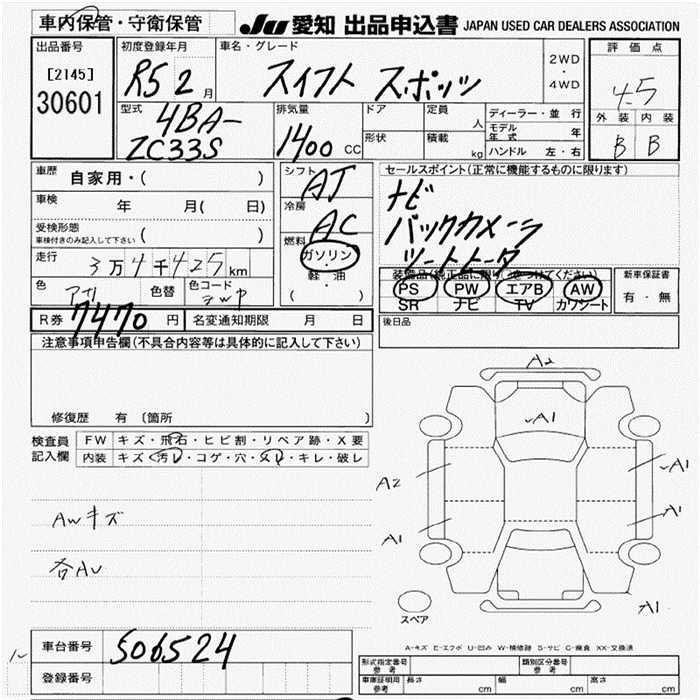 車内保管・守衛保管
JU 愛知 出品申込書 JAPAN USED CAR DEALERS ASSOCIATION
出品番号
[2145]
30601
初度登録年月
R5 2 月
車名・グレード
スイフト スポーツ
2WD
・
4WD
評価点
4.5
外装 内装
B B
型式
4BA-
ZC33S
排気量
1400 CC
ドア
形状
定員
人
積載
kg
ディーラー・並行
モデル年式 年
ハンドル 左・右
車歴
自家用・( )
車検
年 月( 日)
受検形態
車検付きのみ記入して下さい ( )
走行
3万4千425km
色
色替
色コード
ZWP
シフト
AT
冷房
AC
燃料
ガソリン
・
軽・油
( )
セールスポイント(正常に機能するものに限ります)
ナビ
バックカメラ
ツートーン
装備品(純正品に限り○をつけてください)
PS PW エアB AW
SR ナビ TV カワシート
新車保証書
有・無
後日品
R券 7470 円
名変通知期限 月 日
注意事項申告欄(不具合内容等は具体的に記入して下さい)
修復歴 有 〔箇所 〕
検査員
記入欄
FW キズ・飛石・ヒビ割・リペア跡・X要
内装 キズ・汚レ・コゲ・穴・スレ・キレ・破レ
AWキズ
各AU
A2
A1
A2
A1
A1
A1
A1
スペア
A-キズ E-エクボ U-凹み W-補修跡 S-サビ C-腐食 XX-交換済
車台番号
506524
登録番号
形式指定番号
参考
類別区分番号
参考
車庫証明用
参考
長さ cm
幅 cm
高さ cm